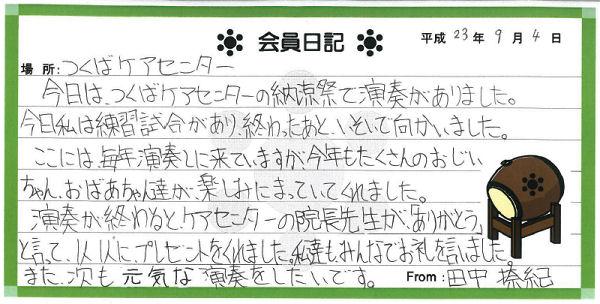 会員日記
平成 23年 9月 4日
場所:つくばケアセンター
今日は、つくばケアセンターの納涼祭で演奏がありました。
今日私は練習試合があり、終わったあと、いそいで向かいました。
ここには、毎年演奏しに来ていますが、今年もたくさんのおじい
ちゃん、おばあちゃん達が、楽しみにまっていてくれました。
演奏が終わると、ケアセンターの院長先生が、「ありがとう。」
と言って、1人1人に、プレゼントをくれました。私達もみんなでお礼を言いました。
また、次も元気な演奏をしたいです。
From:田中 捺紀